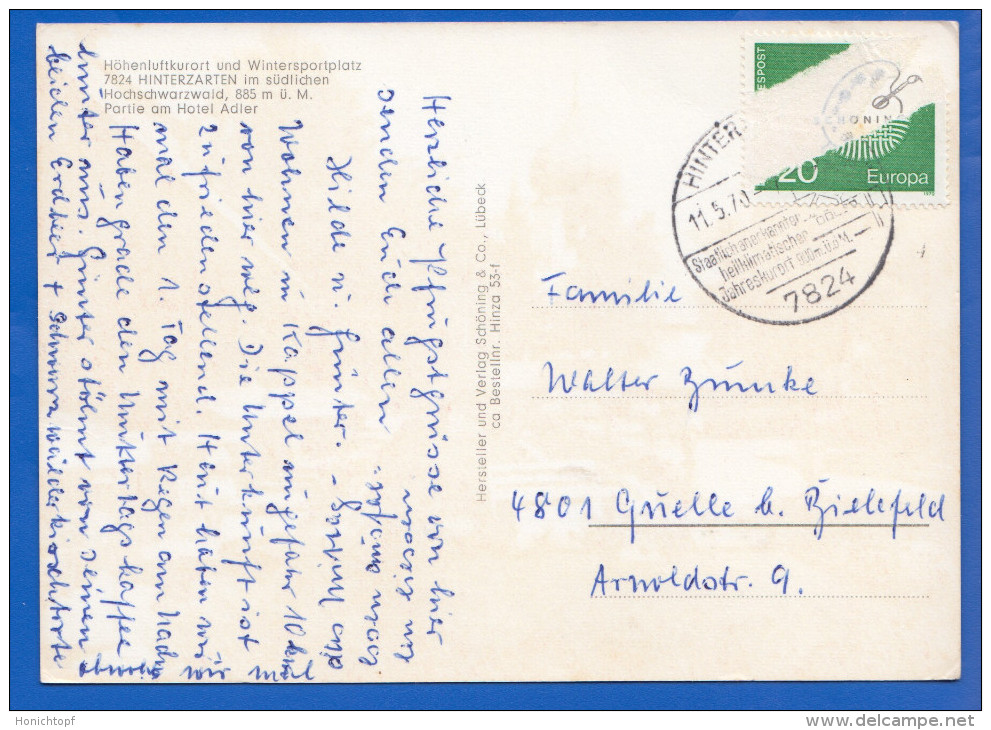 Höhenluftkurort und Wintersportplatz
7824 HINTERZARTEN im südlichen
Hochschwarzwald, 885 m ü. M.
Partie am Hotel Adler
Herzliche Pfingstgrüsse von hier
senden Euch allen
Hilde u. Günter.
Wohnen in Kappel ungefähr 10 km
von hier weg. Die Unterkunft ist
zufriedenstellend. Heut haben wir
mal den 1. Tag mit Regen am Nachm.
Haben grade den Mittagskaffee
hinter uns. Günter stöhnt von seinen
beiden Erdbeer + Schwarzwälderkirschtorte
Hersteller und Verlag Schöning & Co., Lübeck
ca Bestellnr. Hinza 53-f
DESPOST
SCHÖNING
20
Europa
HINTER
11.5.70
Staatlich anerkannter
heilklimatischer
Jahreskurort 900m.ü.M.
7824
Familie
Walter Zunke
4801 Quelle b. Bielefeld
Arnoldstr. 9.
Honichtopf
www.delcampe.net